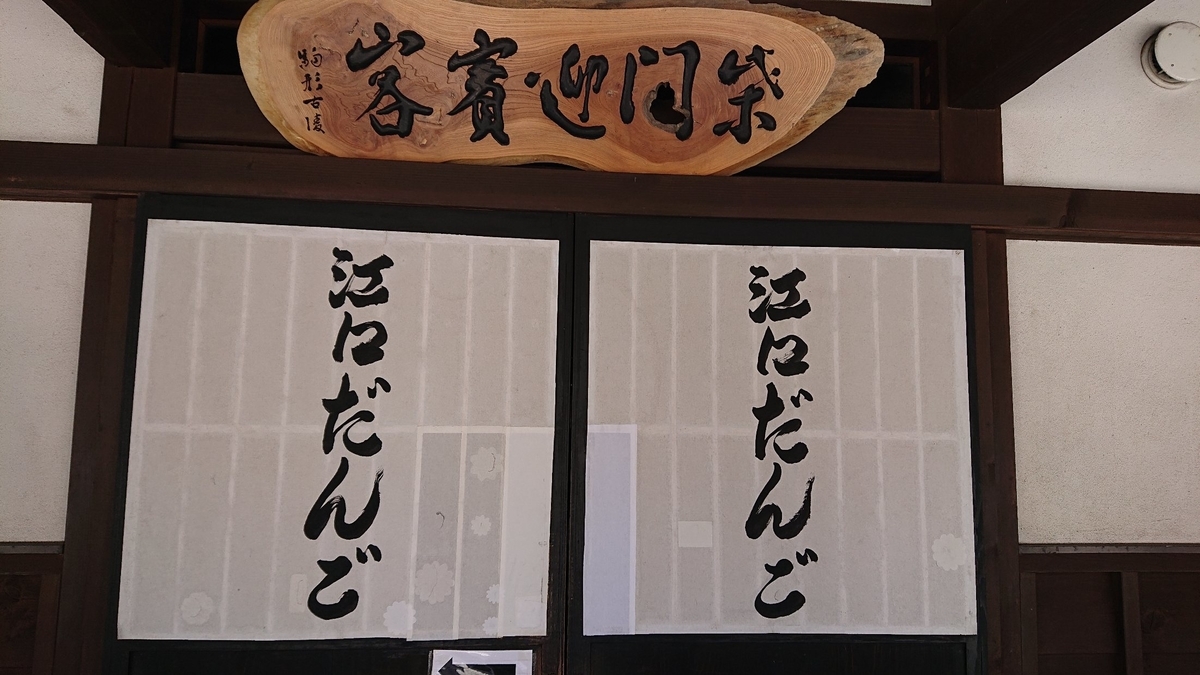 柴門迎賓客
駒形古陵
江口だんご
江口だんご